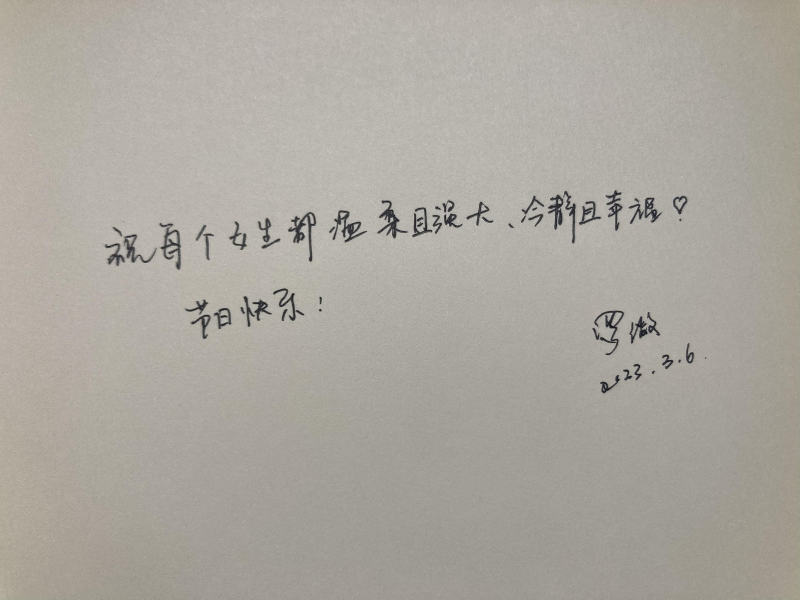 祝每个女生都温柔且强大、冷静且幸福♡
节日快乐!
罗微
2023.3.6.